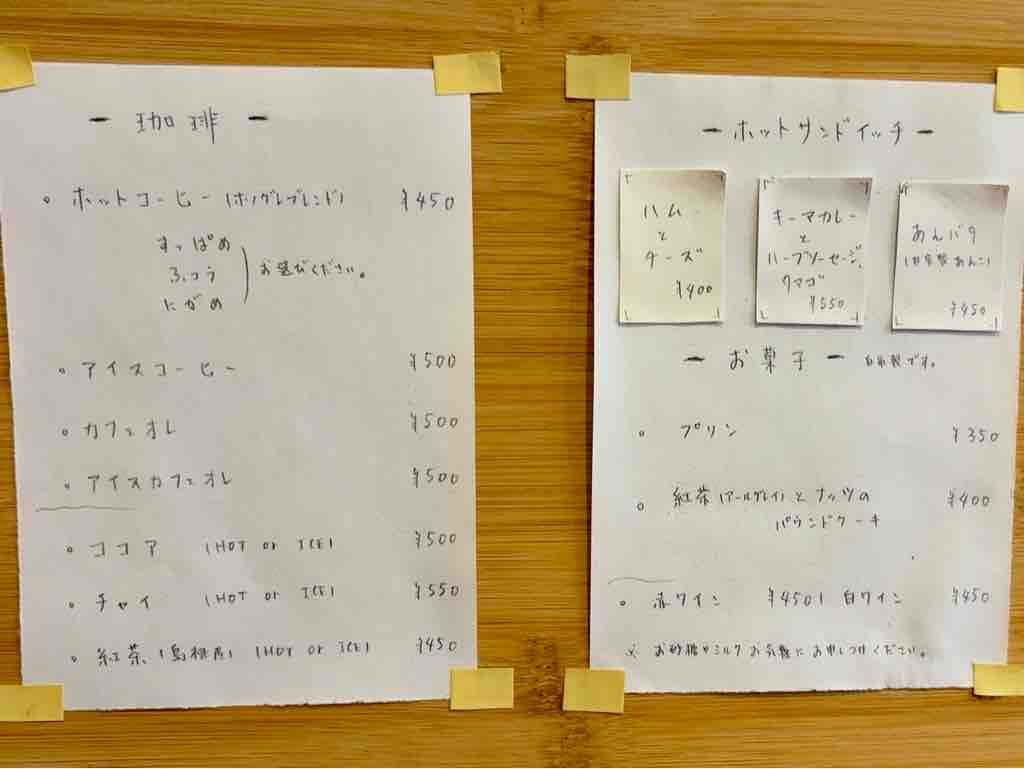 ー 珈琲 ー
。ホットコーヒー ¥450
すっぱめ
ふつう
にがめ
お選びください。
。アイスコーヒー ¥500
。カフェオレ ¥500
。アイスカフェオレ ¥500
。ココア (HOT or ICE) ¥500
。チャイ (HOT or ICE) ¥550
。紅茶 (島根産) (HOT or ICE) ¥450
ー ホットサンドイッチ ー
ハム
と
チーズ
¥400
キーマカレー
と
ハーブソーセージ、
タマゴ
¥550
あんバタ
(自家製あんこ)
¥450
ー お菓子 ー 自家製です。
。プリン ¥350
。紅茶(アールグレイ)とナッツの ¥400
パウンドケーキ
。赤ワイン ¥450 | 白ワイン ¥450
※ お砂糖やミルクお気軽にお申しつけください。